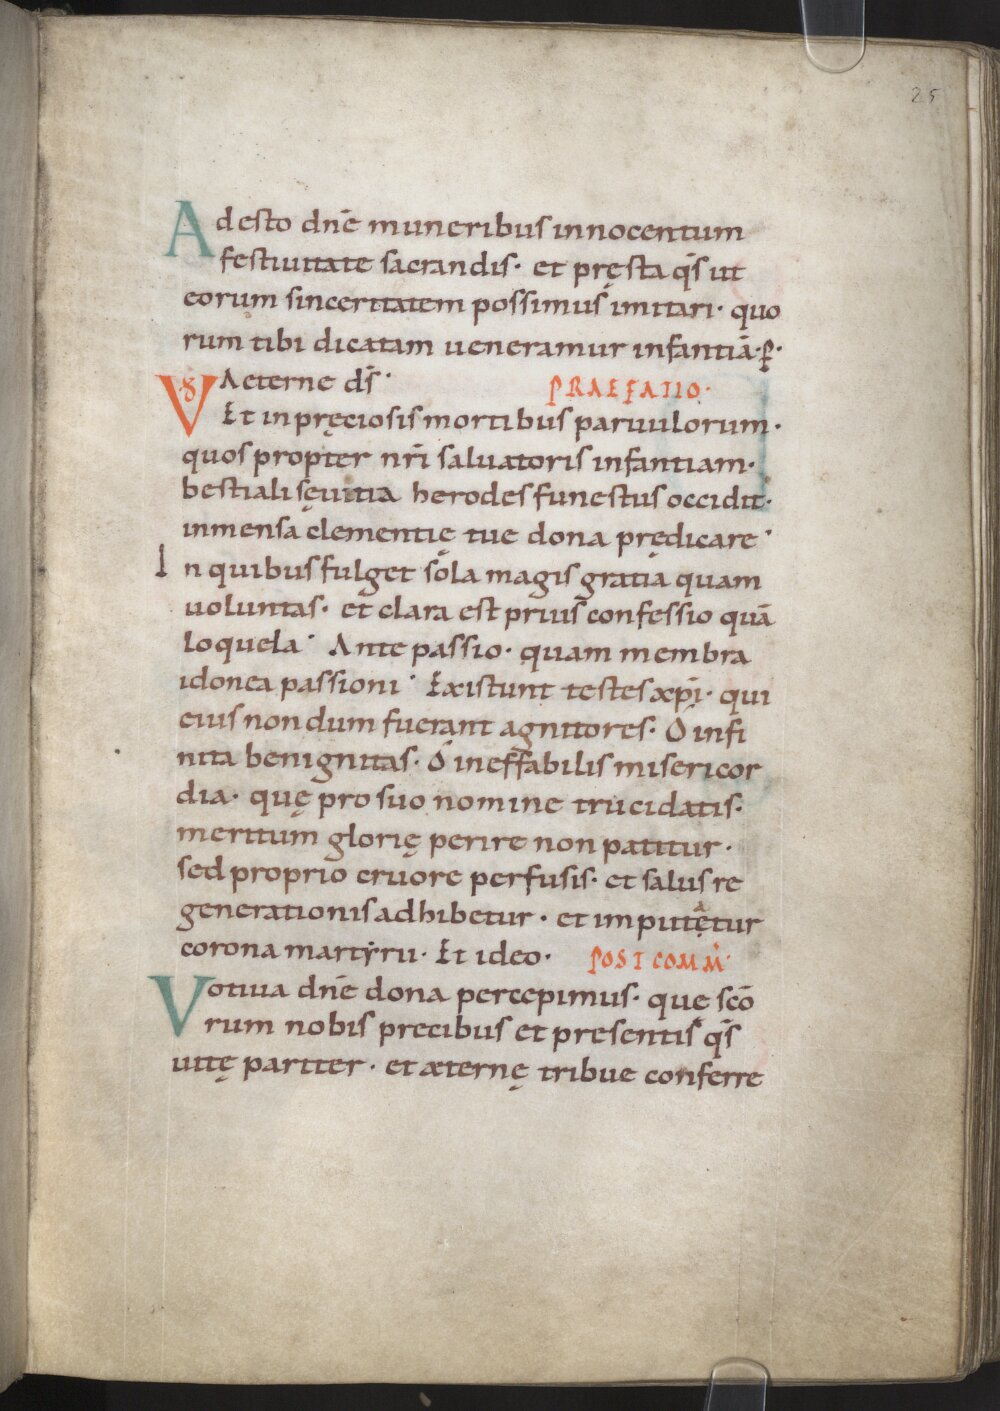 25
Adesto dnē muneribus innocentum
festiuitate sacrandis· et pręsta qs̄ ut
eorum sinceritatem possimus imitari· quo
rum tibi dicatam ueneramur infantiā·ꝑ·
VAeterne ds̄· PRAEFATIO·
Et in pręciosis mortibus paruulorum·
quos propter nr̄i saluatoris infantiam·
bestiali sęuitia herodes funestus occidit·
inmensa clementię tue dona prędicare·
In quibus fulget sola magis gratia quam
uoluntas· et clara est prius confessio quā
loquela· Ante passio· quam membra
idonea passioni· Existunt testes xp̄i· qui
eius nondum fuerant agnitores· O infi
nita benignitas· O ineffabilis misericor
dia· quę pro suo nomine trucidatis·
meritum glorię perire non patitur·
sed proprio cruore perfusis· et salus re
generationis adhibetur· et imputętur
corona martyru· Et ideo· POST COMM̄·
Votiua dnē dona percepimus· quę scō
rum nobis precibus et presentis qs̄
uitę pariter· et æternę tribue conferre